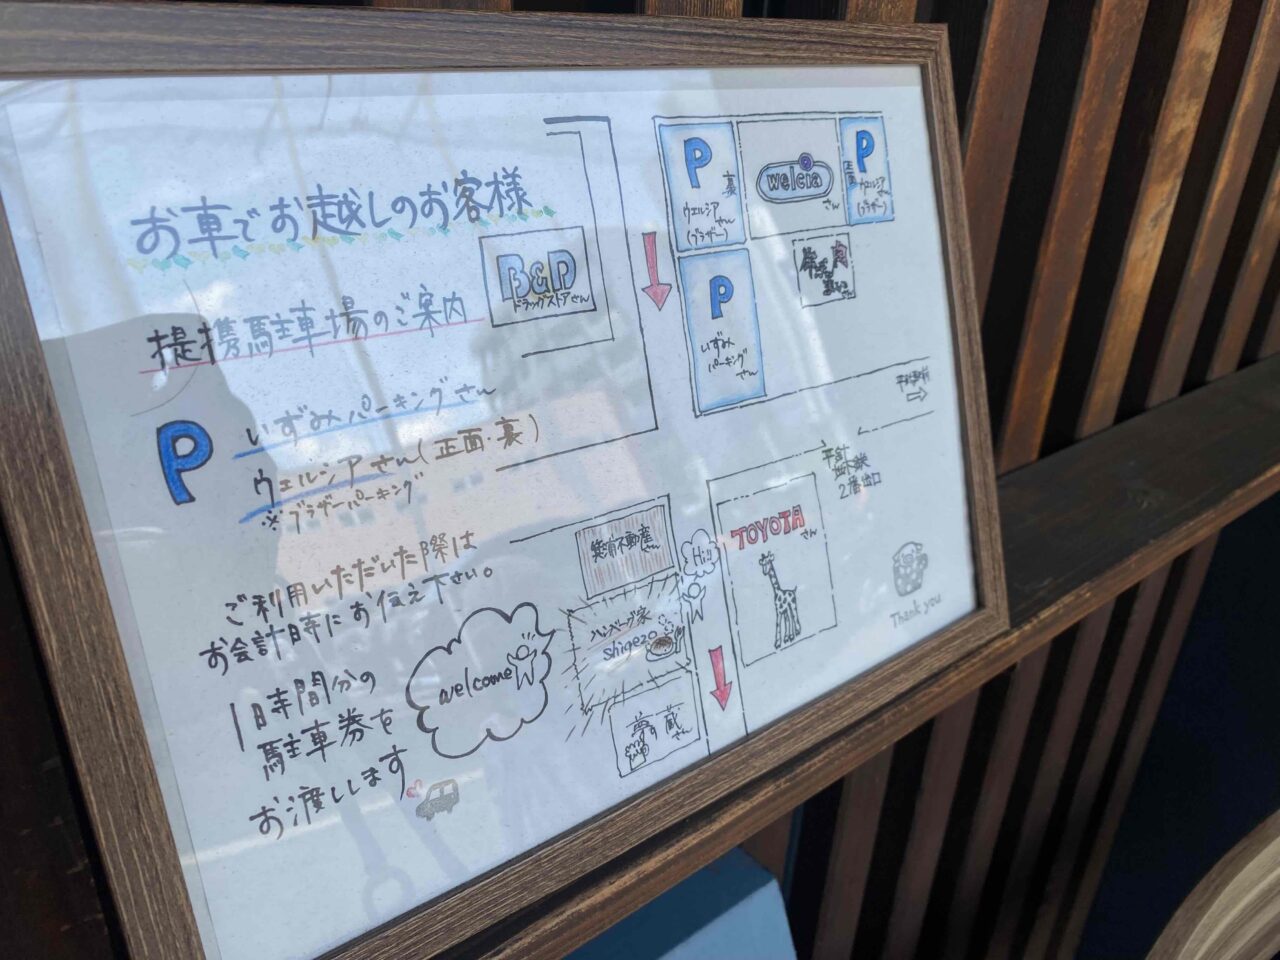 お車でお越しのお客様
提携駐車場のご案内
P いずみパーキングさん
ウェルシアさん(正面・裏)
※ブラザーパーキング
ご利用いただいた際は
お会計時にお伝え下さい。
1時間分の
駐車券を
お渡しします
welcome
B&D
ドラッグストアさん
P 裏
ウェルシア
さん
(ブラザー)
welcia
さん
P
正面
ウェルシア
(ブラザー)
P
いずみ
パーキング
さん
千種
地下鉄
2番出口
不動産
さん
Hi!!
ハンバーグ家
shigezo
夢 蔵
さん
TOYOTA
さん
Thank you